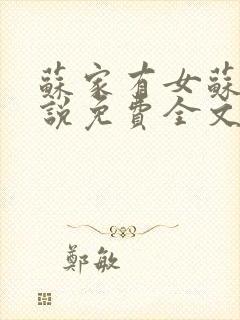 蘇家有女蘇
說免費全文
鄭敏